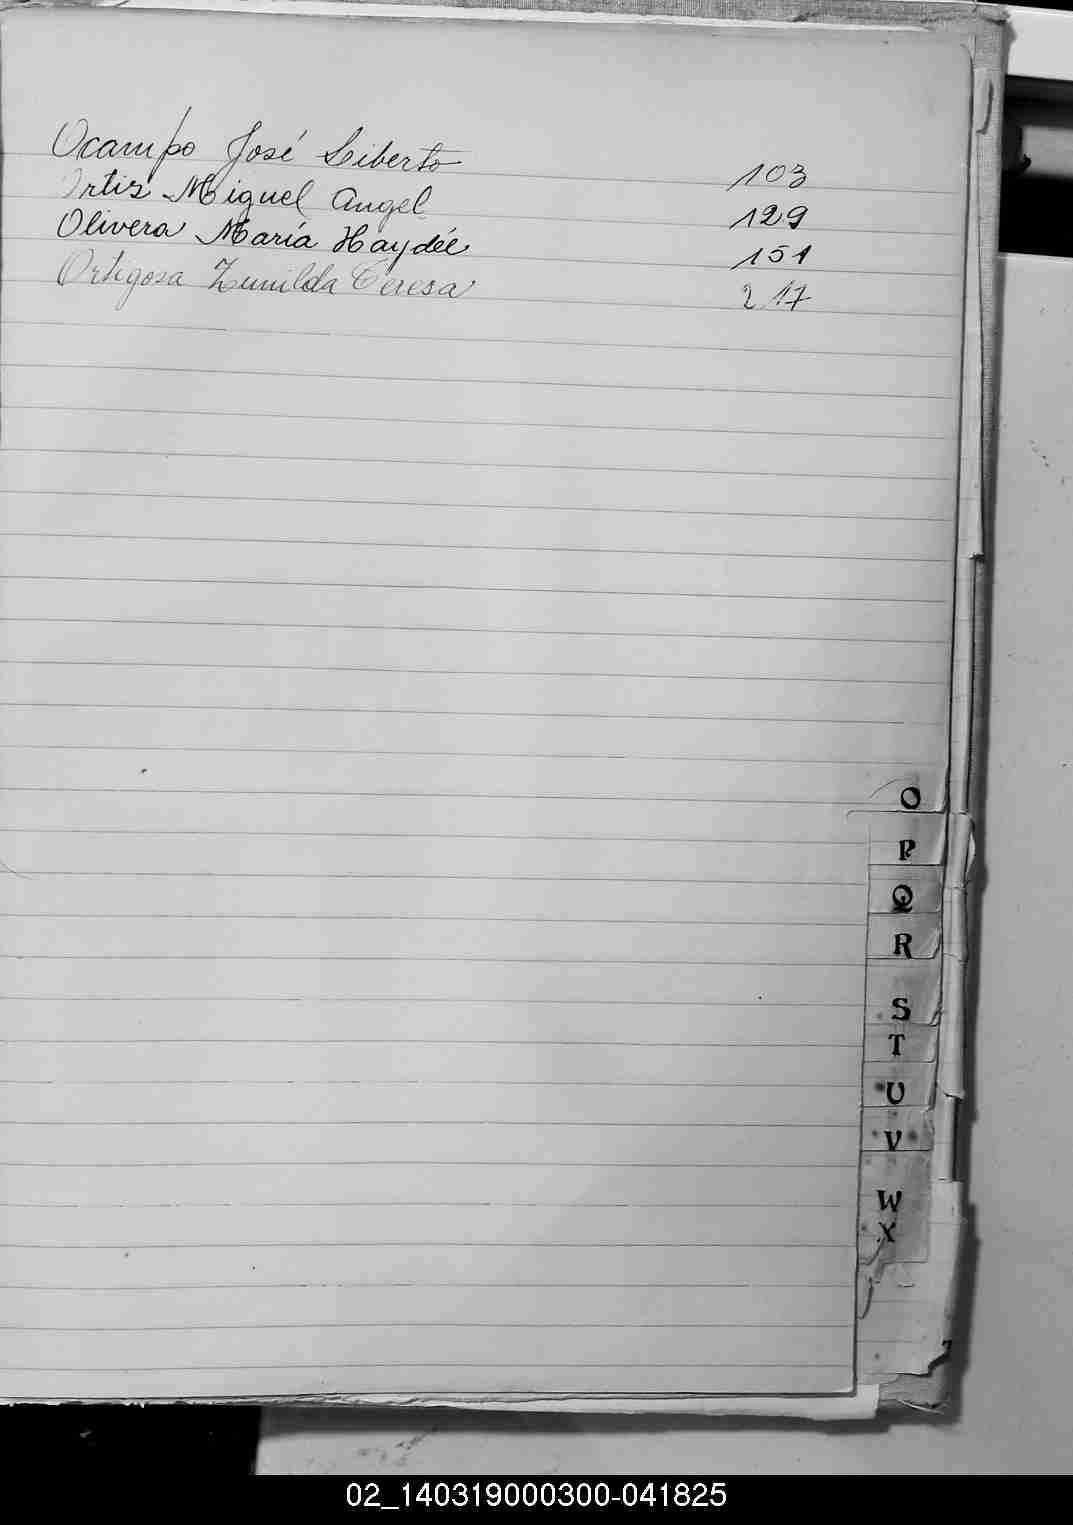 Ocampo José Liberto 103
Ortiz Miguel Angel 129
Olivera María Haydée 151
Ortigosa Zunilda Teresa 217
O
P
Q
R
S
T
U
V
W
X
02_140319000300-041825